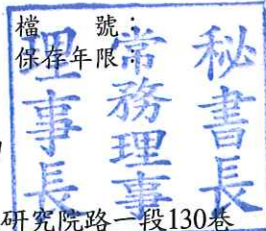 檔　　號：
保存年限：
理事長
常務理事
秘書長
研究院路一段130巷